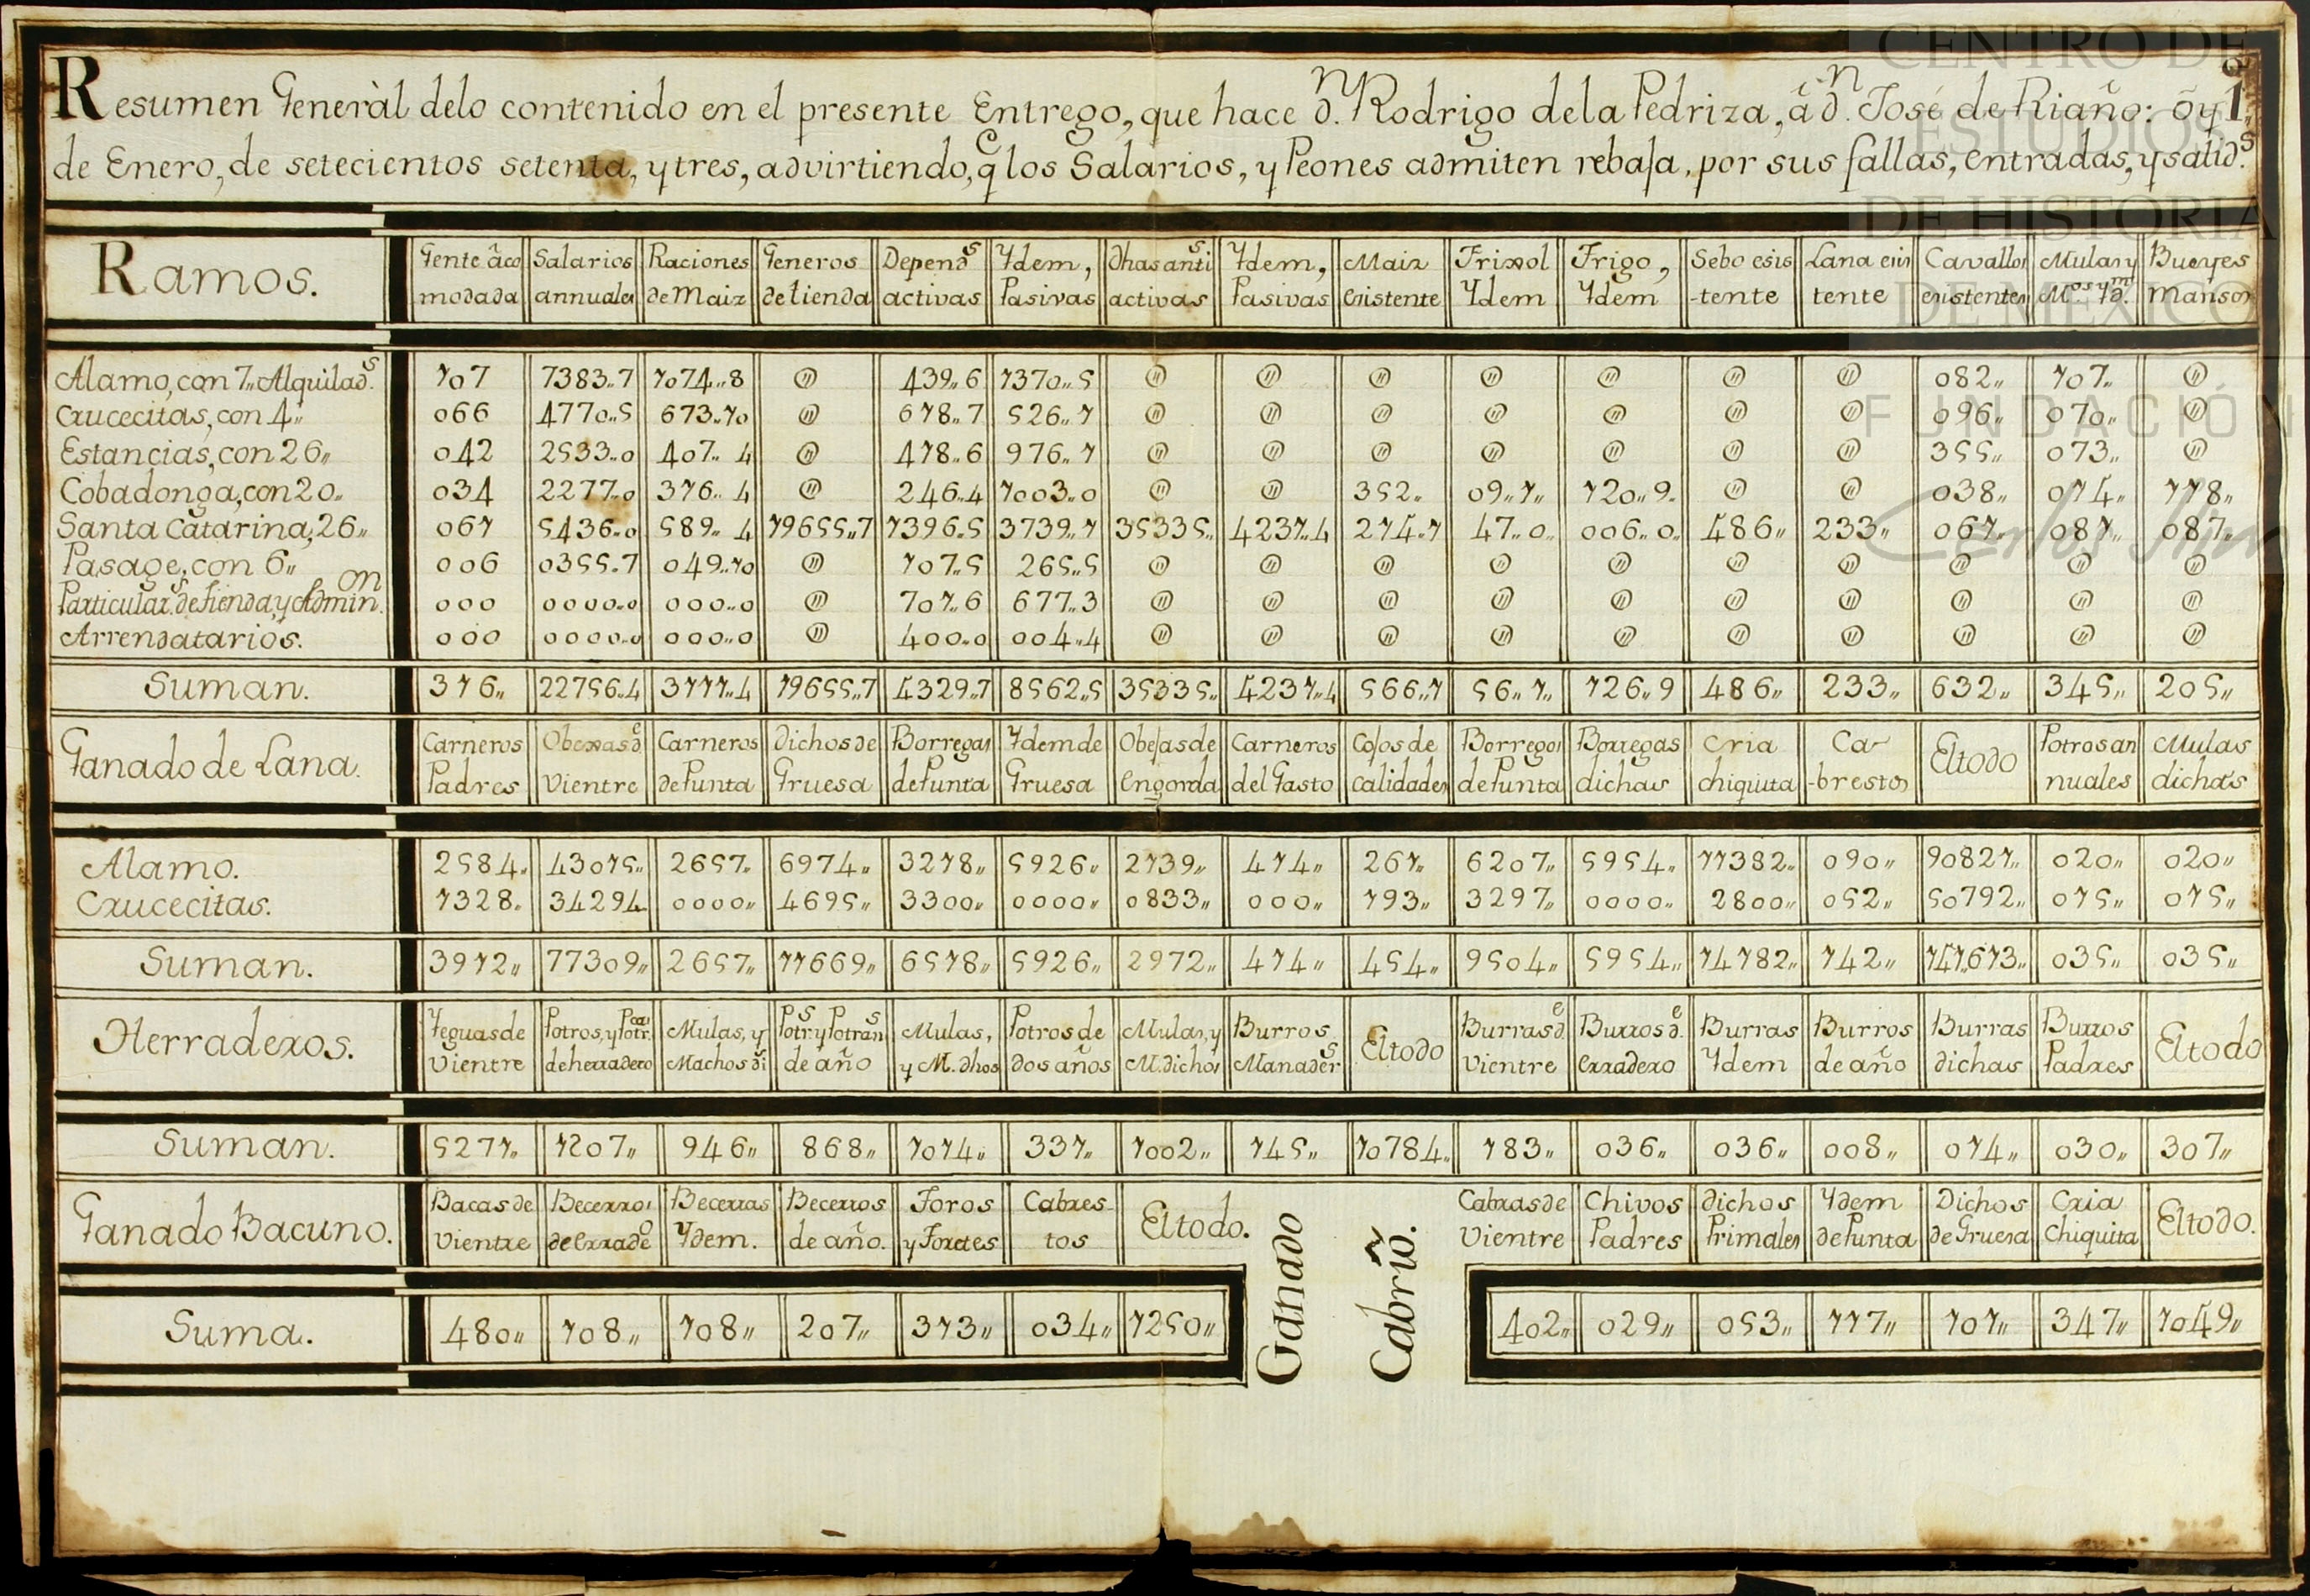 CENTRO DE
ESTUDIOS
DE HISTORIA
DE MÉXICO
FUNDACIÓN
Carlos Slim
Resumen Generàl delo contenido en el presente Entrego, que hace dⁿ. Rodrigo dela Pedriza, â dⁿ. José de Riaño: ŏy 1º
de Enero, de setecientos setenta, y tres, advirtiendo, q̃ los Salarios, y Peones admiten rebaja, por sus fallas, entradas, y salidˢ.
Ramos. Gente âco modada Salarios annuales Raciones de Maiz Generos de tienda Dependˢ activas Ydem, Pasivas Dhas antiˢ activas Ydem, Pasivas Maiz existente Frixol Ydem Trigo, Ydem Sebo esis -tente Lana exis tente Cavallos existentes Mulas y Mᵒˢ Yᵐd. Bueyes mansos
Alamo, con 7,, Alquiladˢ. 107 7383,,7 1074,,8 @ 439,,6 1370,,5 @ @ @ @ @ @ @ 082,, 107,, @
Crucecitas, con 4,, 066 4770,,5 673,,10 @ 618,,7 526,,1 @ @ @ @ @ @ @ 096,, 070,, @
Estancias, con 26,, 042 2533,,0 407,,4 @ 418,,6 976,,1 @ @ @ @ @ @ @ 355,, 073,, @
Cobadonga, con 20,, 034 2277,,0 316,,4 @ 246,,4 1003,,0 @ @ 352,, 09,,1,, 120,,9,, @ @ 038,, 014,, 118,,
Santa Catarina, 26,, 061 5436,,0 589,,4 19655,,7 1396,,5 3739,,1 35335,, 4231,,4 214,,1 47,,0,, 006,,0,, 486,, 233,, 061,, 081,, 087,,
Pasage, con 6,, 006 0355,,7 049,,10 @ 107,,5 265,,5 @ @ @ @ @ @ @ @ @ @
Particularˢ. de tienda, y Adminᵒⁿ. 000 0000,,0 000,,0 @ 701,,6 677,,3 @ @ @ @ @ @ @ @ @ @
Arrendatarios. 000 0000,,0 000,,0 @ 400,,0 004,,4 @ @ @ @ @ @ @ @ @ @
Suman. 316,, 22756,,4 3111,,4 19655,,7 4329,,7 8562,,5 35335,, 4231,,4 566,,1 56,,1,, 126,,9 486,, 233,, 632,, 345,, 205,,
Ganado de Lana. Carneros Padres Obexas dᵉ Vientre Carneros de Punta Dichos de Gruesa Borregas de Punta Ydem de Gruesa Obejas de Engorda Carneros del Gasto Cojos de Calidades Borregos de Punta Borregas dichas Cria chiquita Ca- -brestos El todo Potros an nuales Mulas dichas
Alamo. 2584,, 43015,, 2657,, 6974,, 3218,, 5926,, 2139,, 414,, 261,, 6207,, 5954,, 11382,, 090,, 90821,, 020,, 020,,
Crucecitas. 1328,, 34294 0000,, 4695,, 3300,, 0000,, 0833,, 000,, 193,, 3297,, 0000,, 2800,, 052,, 50792,, 015,, 015,,
Suman. 3912,, 77309,, 2657,, 11669,, 6518,, 5926,, 2972,, 414,, 454,, 9504,, 5954,, 14182,, 142,, 141,613,, 035,, 035,,
Herraderos. Yeguas de Vientre Potros, y Potrᵃˢ. de herradero Mulas, y Machos diˢ Potrˢ. y Potranˢ de año Mulas, y M. dhos Potros de dos años Mulas, y M. dichos Burros Manaderˢ El todo Burras dᵉ. Vientre Burros dᵉ. Erradero Burras Ydem Burros de año Burras dichas Burros Padres El todo
Suman. 5271,, 1207,, 946,, 868,, 1014,, 331,, 1002,, 145,, 10784,, 183,, 036,, 036,, 008,, 014,, 030,, 307,,
Ganado Bacuno. Bacas de Vientre Becerros de Erradeᵒ Becerras Ydem. Becerros de año. Toros y Toretes Cabres- tos El todo. Ganado Cabrió. Cabras de Vientre Chivos Padres dichos Primales Ydem de Punta Dichos de Gruesa Cria Chiquita El todo.
Suma. 480,, 108,, 108,, 207,, 313,, 034,, 1250,, 402,, 029,, 053,, 117,, 101,, 347,, 1049,,